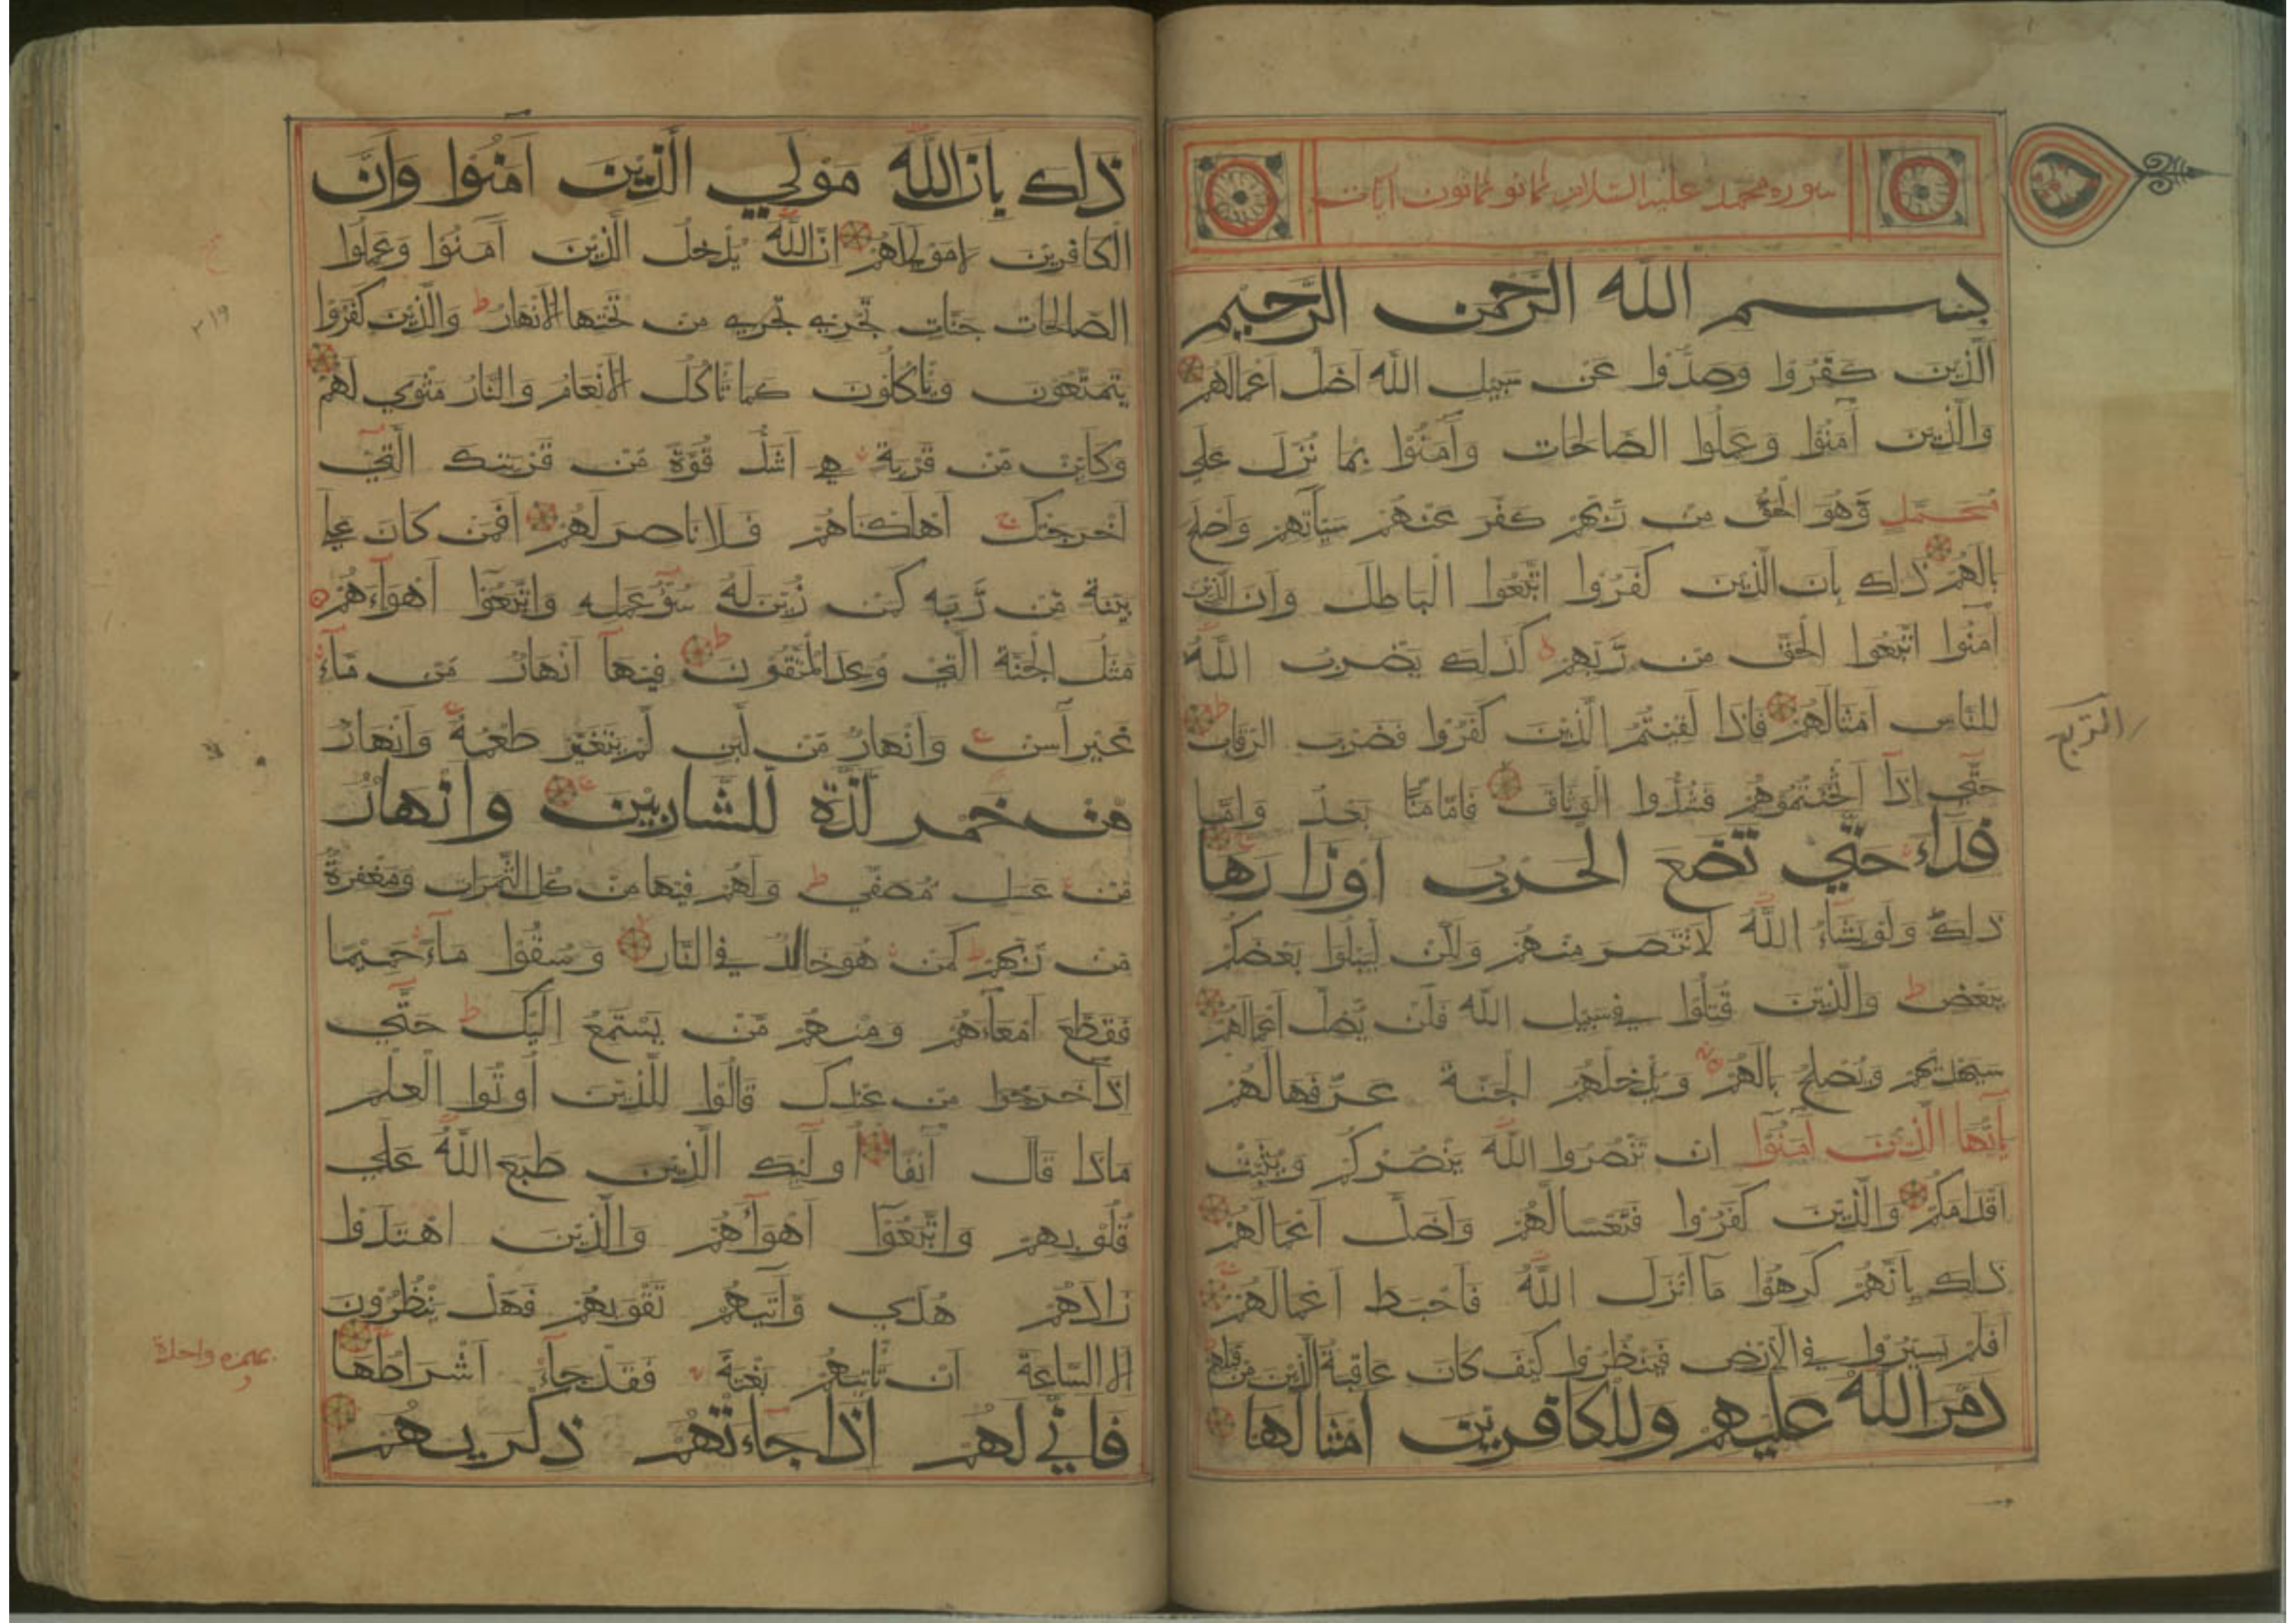 سورة محمد عليه السلام ثمانو ثمانون آيات
بسم الله الرحمن الرحيم
الَّذِيْنَ كَفَرُوْا وَصَدُّوْا عَنْ سَبِيْلِ اللّٰه اَضَلَّ اَعْمَالَهُمْ
وَالَّذِيْنَ آمَنُوْا وَعَمِلُوا الصَّالِحَاتِ وَآمَنُوْا بِمَا نُزِّلَ عَلٰي
مُحَمَّدٍ وَّهُوَ الْحَقُّ مِنْ رَّبِّهِمْ كَفَّرَ عَنْهُمْ سَيِّآتِهِمْ وَاَصْلَحَ
بَالَهُمْ ذٰلِكَ بِاَنَّ الَّذِيْنَ كَفَرُوا اتَّبَعُوا الْبَاطِلَ وَاَنَّ الَّذِيْنَ
آمَنُوا اتَّبَعُوا الْحَقَّ مِنْ رَّبِّهِمْ كَذٰلِكَ يَضْرِبُ اللّٰهُ
لِلنَّاسِ اَمْثَالَهُمْ فَاِذَا لَقِيْتُمُ الَّذِيْنَ كَفَرُوْا فَضَرْبَ الرِّقَابِ
حَتّٰي اِذَآ اَثْخَنْتُمُوْهُمْ فَشُدُّوا الْوَثَاقَ فَاِمَّا مَنًّا بَعْدُ وَاِمَّا
فِدَآءً حَتّٰي تَضَعَ الْحَرْبُ اَوْزَارَهَا
ذٰلِكَ وَلَوْ يَشَآءُ اللّٰهُ لَانْتَصَرَ مِنْهُمْ وَلٰكِنْ لِيَبْلُوَا بَعْضَكُمْ
بِبَعْضٍ وَالَّذِيْنَ قُتِلُوْا فِي سَبِيْلِ اللّٰه فَلَنْ يُّضِلَّ اَعْمَالَهُمْ
سَيَهْدِيْهِمْ وَيُصْلِحُ بَالَهُمْ وَيُدْخِلُهُمُ الْجَنَّةَ عَرَّفَهَا لَهُمْ
يٰٓاَيُّهَا الَّذِيْنَ آمَنُوْا اِنْ تَنْصُرُوا اللّٰهَ يَنْصُرْكُمْ وَيُثَبِّتْ
اَقْدَامَكُمْ وَالَّذِيْنَ كَفَرُوْا فَتَعْسًا لَّهُمْ وَاَضَلَّ اَعْمَالَهُمْ
ذٰلِكَ بِاَنَّهُمْ كَرِهُوْا مَآ اَنْزَلَ اللّٰهُ فَاَحْبَطَ اَعْمَالَهُمْ
اَفَلَمْ يَسِيْرُوْا فِي الْاَرْضِ فَيَنْظُرُوْا كَيْفَ كَانَ عَاقِبَةُ الَّذِيْنَ مِنْ قَبْلِهِمْ
دَمَّرَ اللّٰهُ عَلَيْهِمْ وَلِلْكَافِرِيْنَ اَمْثَالُهَا
الربع
ذٰلِكَ بِاَنَّ اللّٰهَ مَوْلَي الَّذِيْنَ آمَنُوْا وَاَنَّ
الْكَافِرِيْنَ لَا مَوْلٰي لَهُمْ اِنَّ اللّٰهَ يُدْخِلُ الَّذِيْنَ آمَنُوْا وَعَمِلُوا
الصَّالِحَاتِ جَنَّاتٍ تَجْرِيْ تَجْرِيْ مِنْ تَحْتِهَا الْاَنْهَارُ وَالَّذِيْنَ كَفَرُوْا
يَتَمَتَّعُوْنَ وَيَأْكُلُوْنَ كَمَا تَأْكُلُ الْاَنْعَامُ وَالنَّارُ مَثْوًي لَهُمْ
وَكَاَيِّنْ مِّنْ قَرْيَةٍ هِيَ اَشَدُّ قُوَّةً مِّنْ قَرْيَتِكَ الَّتِيْ
اَخْرَجَتْكَ اَهْلَكْنَاهُمْ فَلَا نَاصِرَ لَهُمْ اَفَمَنْ كَانَ عَلٰي
بَيِّنَةٍ مِّنْ رَّبِّهِ كَمَنْ زُيِّنَ لَهُ سُوْٓءُ عَمَلِهِ وَاتَّبَعُوْٓا اَهْوَآءَهُمْ
مَثَلُ الْجَنَّةِ الَّتِيْ وُعِدَ الْمُتَّقُوْنَ فِيْهَآ اَنْهَارٌ مِّنْ مَّآءٍ
غَيْرِ آسِنٍ وَاَنْهَارٌ مِّنْ لَبَنٍ لَّمْ يَتَغَيَّرْ طَعْمُهُ وَاَنْهَارٌ
مِّنْ خَمْرٍ لَّذَّةٍ لِّلشَّارِبِيْنَ وَاَنْهَارٌ
مِّنْ عَسَلٍ مُّصَفًّي وَلَهُمْ فِيْهَا مِنْ كُلِّ الثَّمَرَاتِ وَمَغْفِرَةٌ
مِّنْ رَّبِّهِمْ كَمَنْ هُوَ خَالِدٌ فِي النَّارِ وَسُقُوْا مَآءً حَمِيْمًا
فَقَطَّعَ اَمْعَآءَهُمْ وَمِنْهُمْ مَّنْ يَسْتَمِعُ اِلَيْكَ حَتّٰي
اِذَا خَرَجُوا مِنْ عِنْدِكَ قَالُوْا لِلَّذِيْنَ اُوْتُوا الْعِلْمَ
مَاذَا قَالَ آنِفًا اُولٰٓئِكَ الَّذِيْنَ طَبَعَ اللّٰهُ عَلٰي
قُلُوْبِهِمْ وَاتَّبَعُوْٓا اَهْوَآءَهُمْ وَالَّذِيْنَ اهْتَدَوْا
زَادَهُمْ هُدًي وَّآتٰيهُمْ تَقْوٰيهُمْ فَهَلْ يَنْظُرُوْنَ
اِلَّا السَّاعَةَ اَنْ تَأْتِيَهُمْ بَغْتَةً فَقَدْ جَآءَ اَشْرَاطُهَا
فَاَنّٰي لَهُمْ اِذَا جَآءَتْهُمْ ذِكْرٰيهُمْ
٣١٩